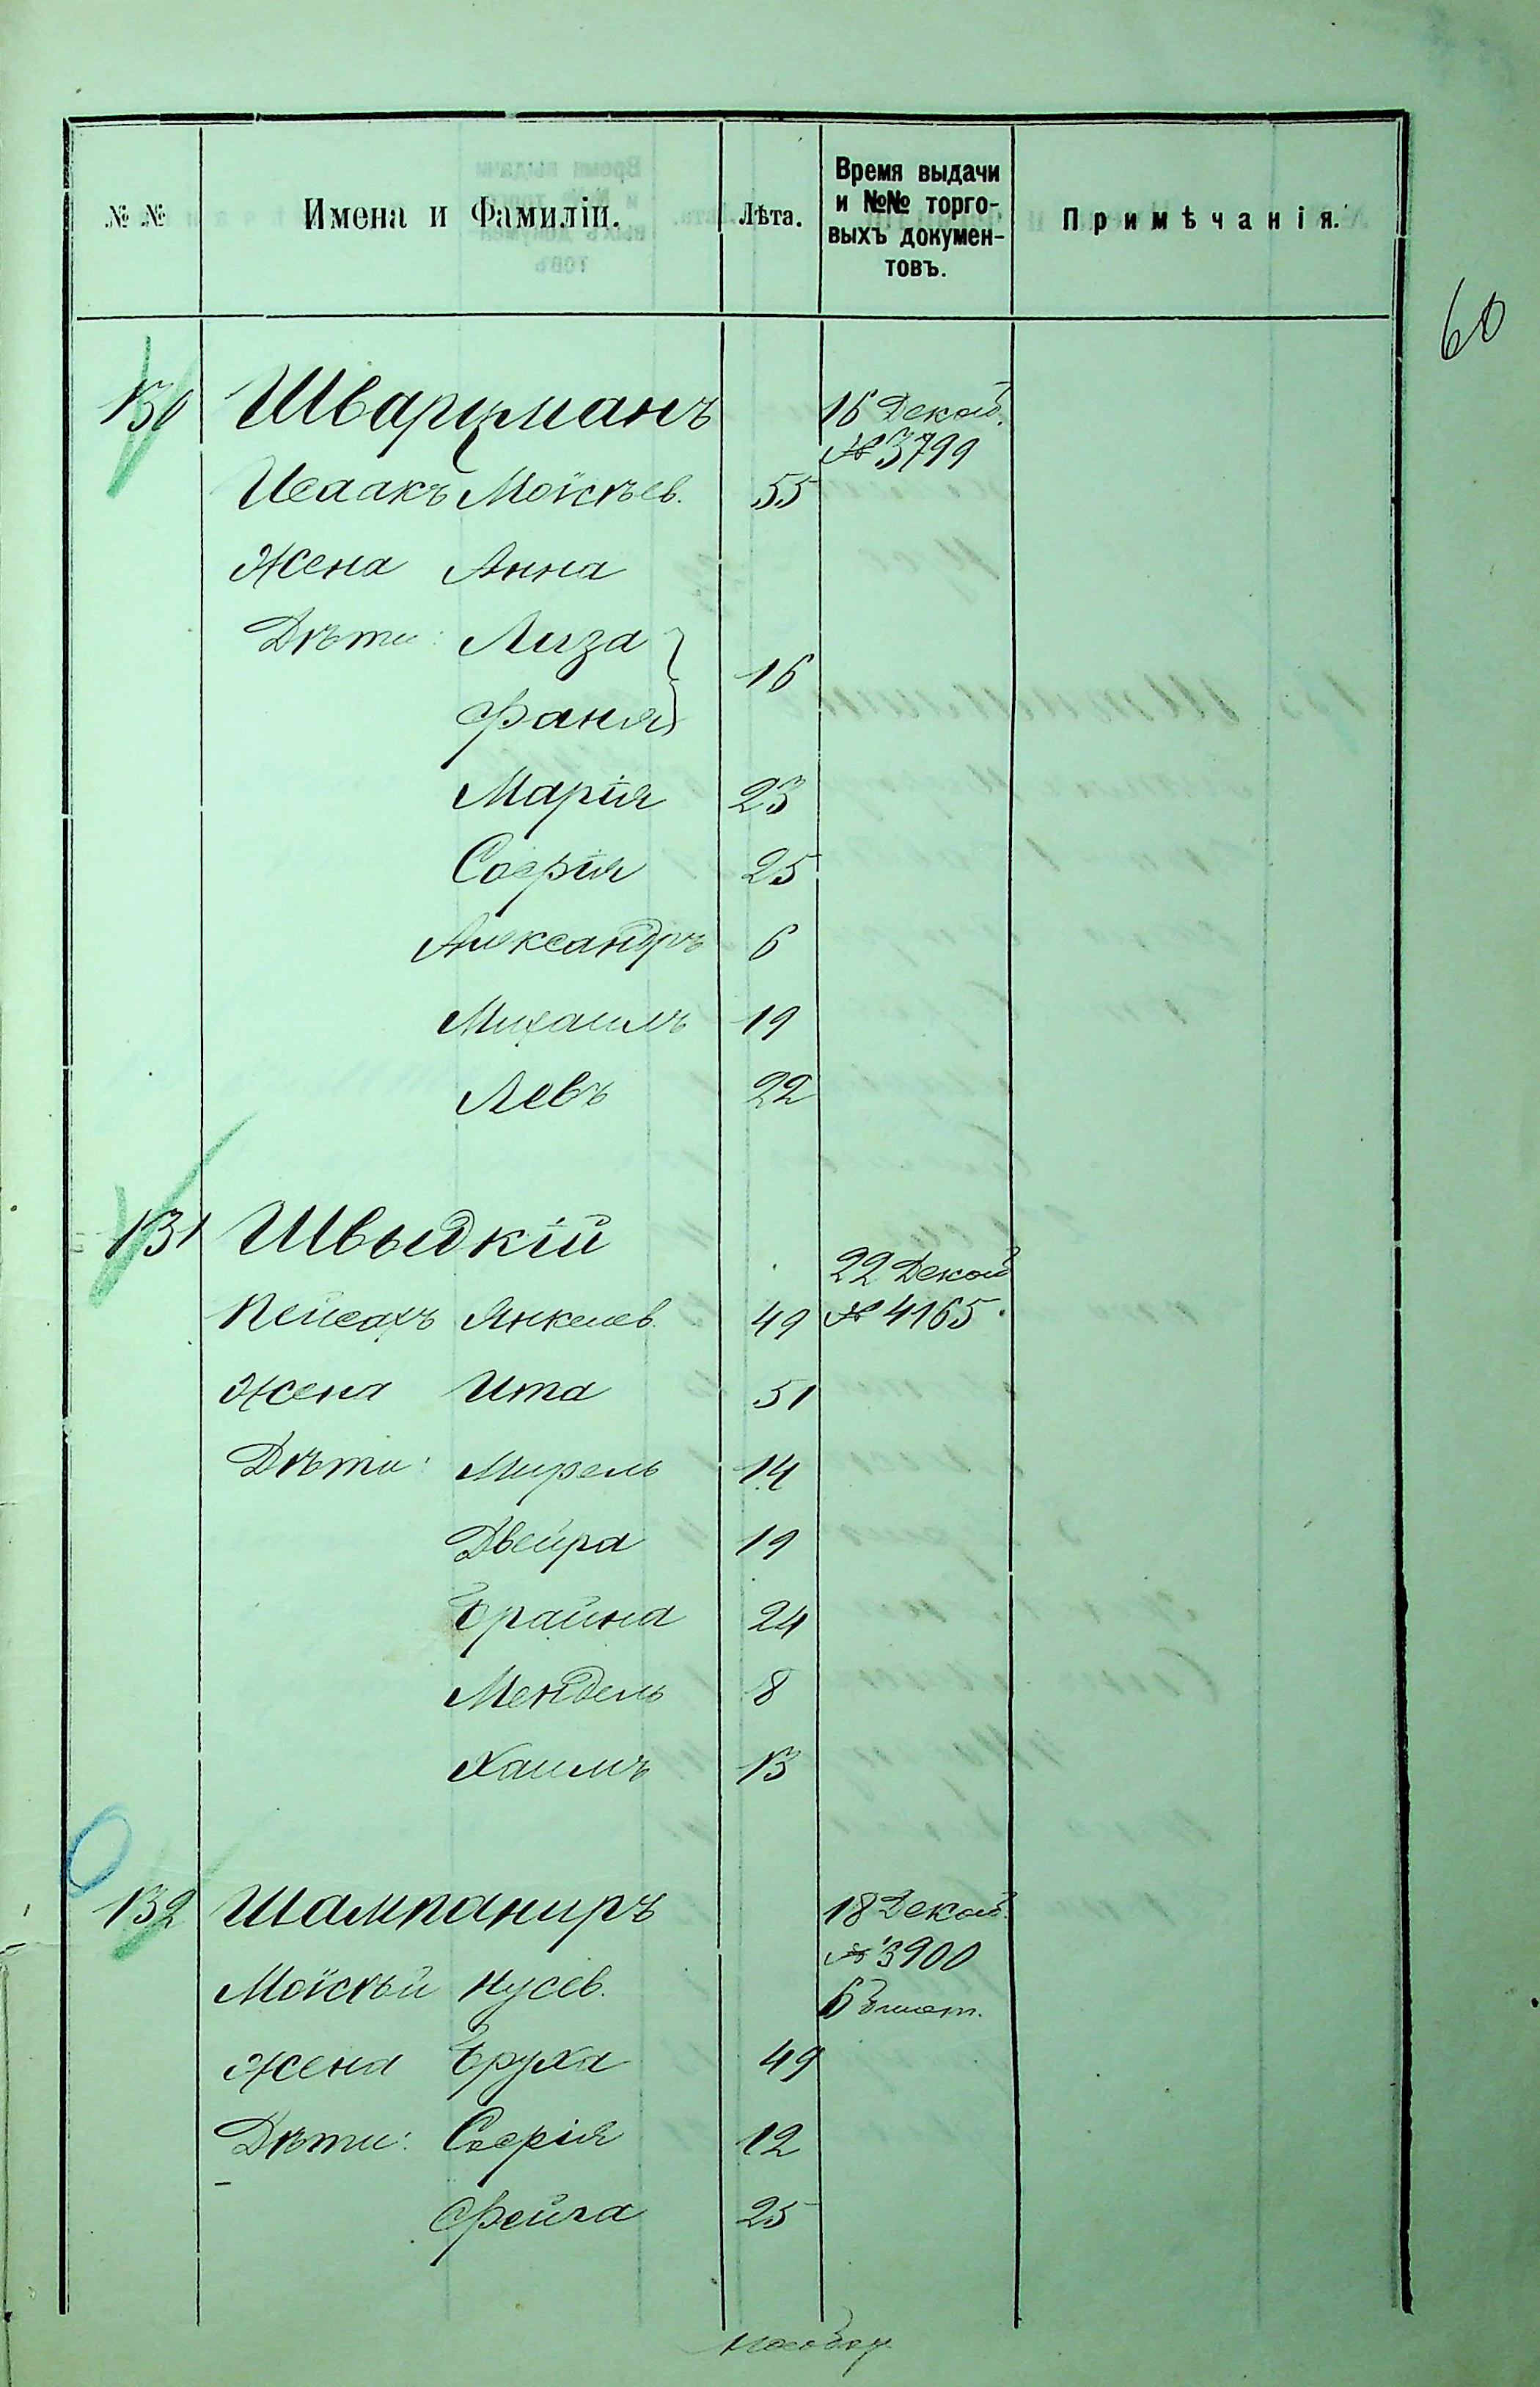 № № Имена и Фамиліи. Лѣта. Время выдачи и №№ торго-выхъ докумен-товъ. Примѣчанія.
60
130 Шварцманъ 16 Декаб.
№ 3799
Исаакъ Моисѣев. 55
Жена Анна
Дѣти: Лиза } 16
Фаня }
Марія 23
Софія 25
Александръ 6
Михаилъ 19
Левъ 22
131 Швыдкій
22 Декаб
Пейсахъ Янкелев. 49 № 4165.
Жена Ита 51
Дѣти: Мирель 14
Двейра 19
Брайна 24
Мендель 8
Хаимъ 13
132 Шампаниръ 18 Декаб.
№ 3900
Моисѣй Нусев. Билет.
Жена Бруха 49
Дѣти: Софія 12
Фейга 25